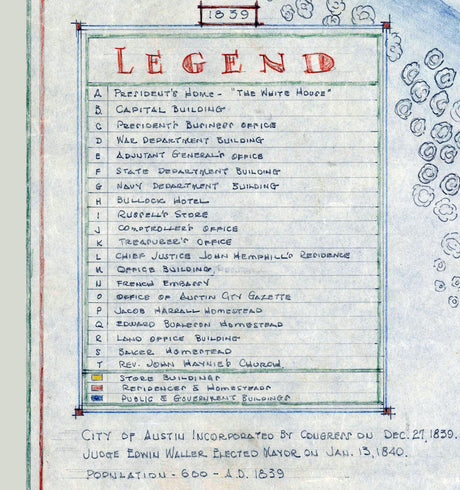 1839
LEGEND
A PRESIDENT'S HOME - "THE WHITE HOUSE"
B CAPITAL BUILDING
C PRESIDENT'S BUSINESS OFFICE
D WAR DEPARTMENT BUILDING
E ADJUTANT GENERAL'S OFFICE
F STATE DEPARTMENT BUILDING
G NAVY DEPARTMENT BUILDING
H BULLOCK HOTEL
I RUSSELL'S STORE
J COMPTROLLER'S OFFICE
K TREASURER'S OFFICE
L CHIEF JUSTICE JOHN HEMPHILL'S RESIDENCE
M OFFICE BUILDING
N FRENCH EMBASSY
O OFFICE OF AUSTIN CITY GAZETTE
P JACOB HARRALL HOMESTEAD
Q EDWARD BURLESON HOMESTEAD
R LAND OFFICE BUILDING
S BAKER HOMESTEAD
T REV. JOHN HAYNIE'S CHURCH
STORE BUILDINGS
RESIDENCES & HOMESTEADS
PUBLIC & GOVERNMENT BUILDINGS
CITY OF AUSTIN INCORPORATED BY CONGRESS ON DEC. 27, 1839.
JUDGE EDWIN WALLER ELECTED MAYOR ON JAN. 13, 1840.
POPULATION - 600 - A.D. 1839